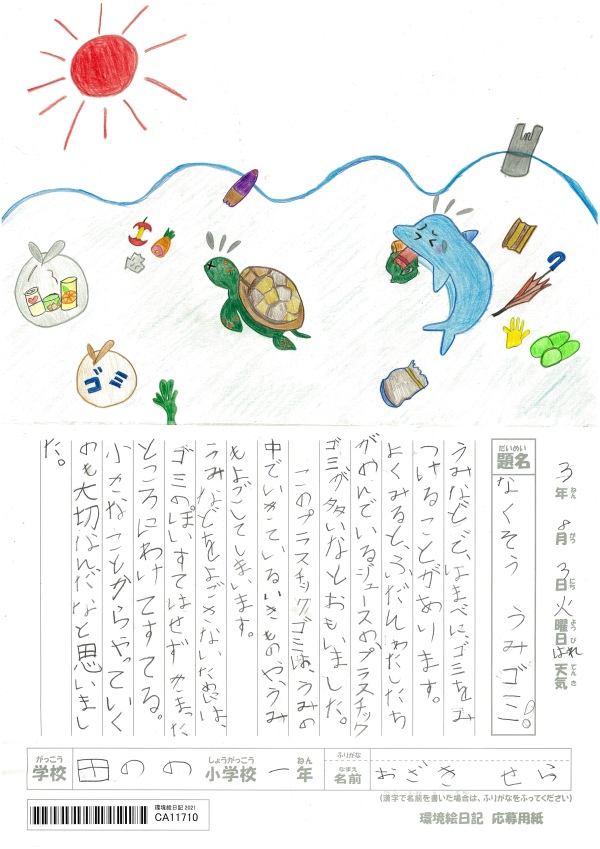 3年ねん 8月がつ 3日にち 火曜日ようび はれ天気てんき
だいめい
題名 なくそう うみゴミ。
うみなどで、はまべに、ゴミをみ
つけることがあります。
よくみると、ふだんわたしたち
がのんでいるジュースの、プラスチック
ゴミが多いなとおもいました。
このプラスチックゴミは、うみの
中でいきているいきものや、うみ
もよごしてしまいます。
うみなどをよごさないためには、
ゴミのぽいすてはせず きまった
ところにわけてすてる。
小さなことからやっていく
のも大切なんだなと思いまし
た。
がっこう しょうがっこう ねん
学校 田のの 小学校 一年
ふりがな
なまえ
名前 おざき せら
(漢字で名前を書いた場合は、ふりがなをふってください)
環境絵日記 2021
CA11710
環境絵日記 応募用紙
ゴミ